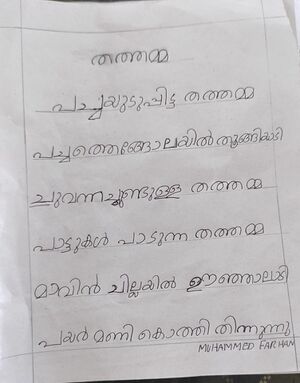 തത്തമ്മ
പച്ചയുടുപ്പിട്ട തത്തമ്മ
പച്ചത്തെങ്ങോലയിൽ തൂങ്ങിയാടി
ചുവന്നചുണ്ടുള്ള തത്തമ്മ
പാട്ടുകൾ പാടുന്ന തത്തമ്മ
മാവിൻ ചില്ലയിൽ ഊഞ്ഞാലാടി
പയർ മണി കൊത്തി തിന്നുന്നു
MUHAMMED FARHAN